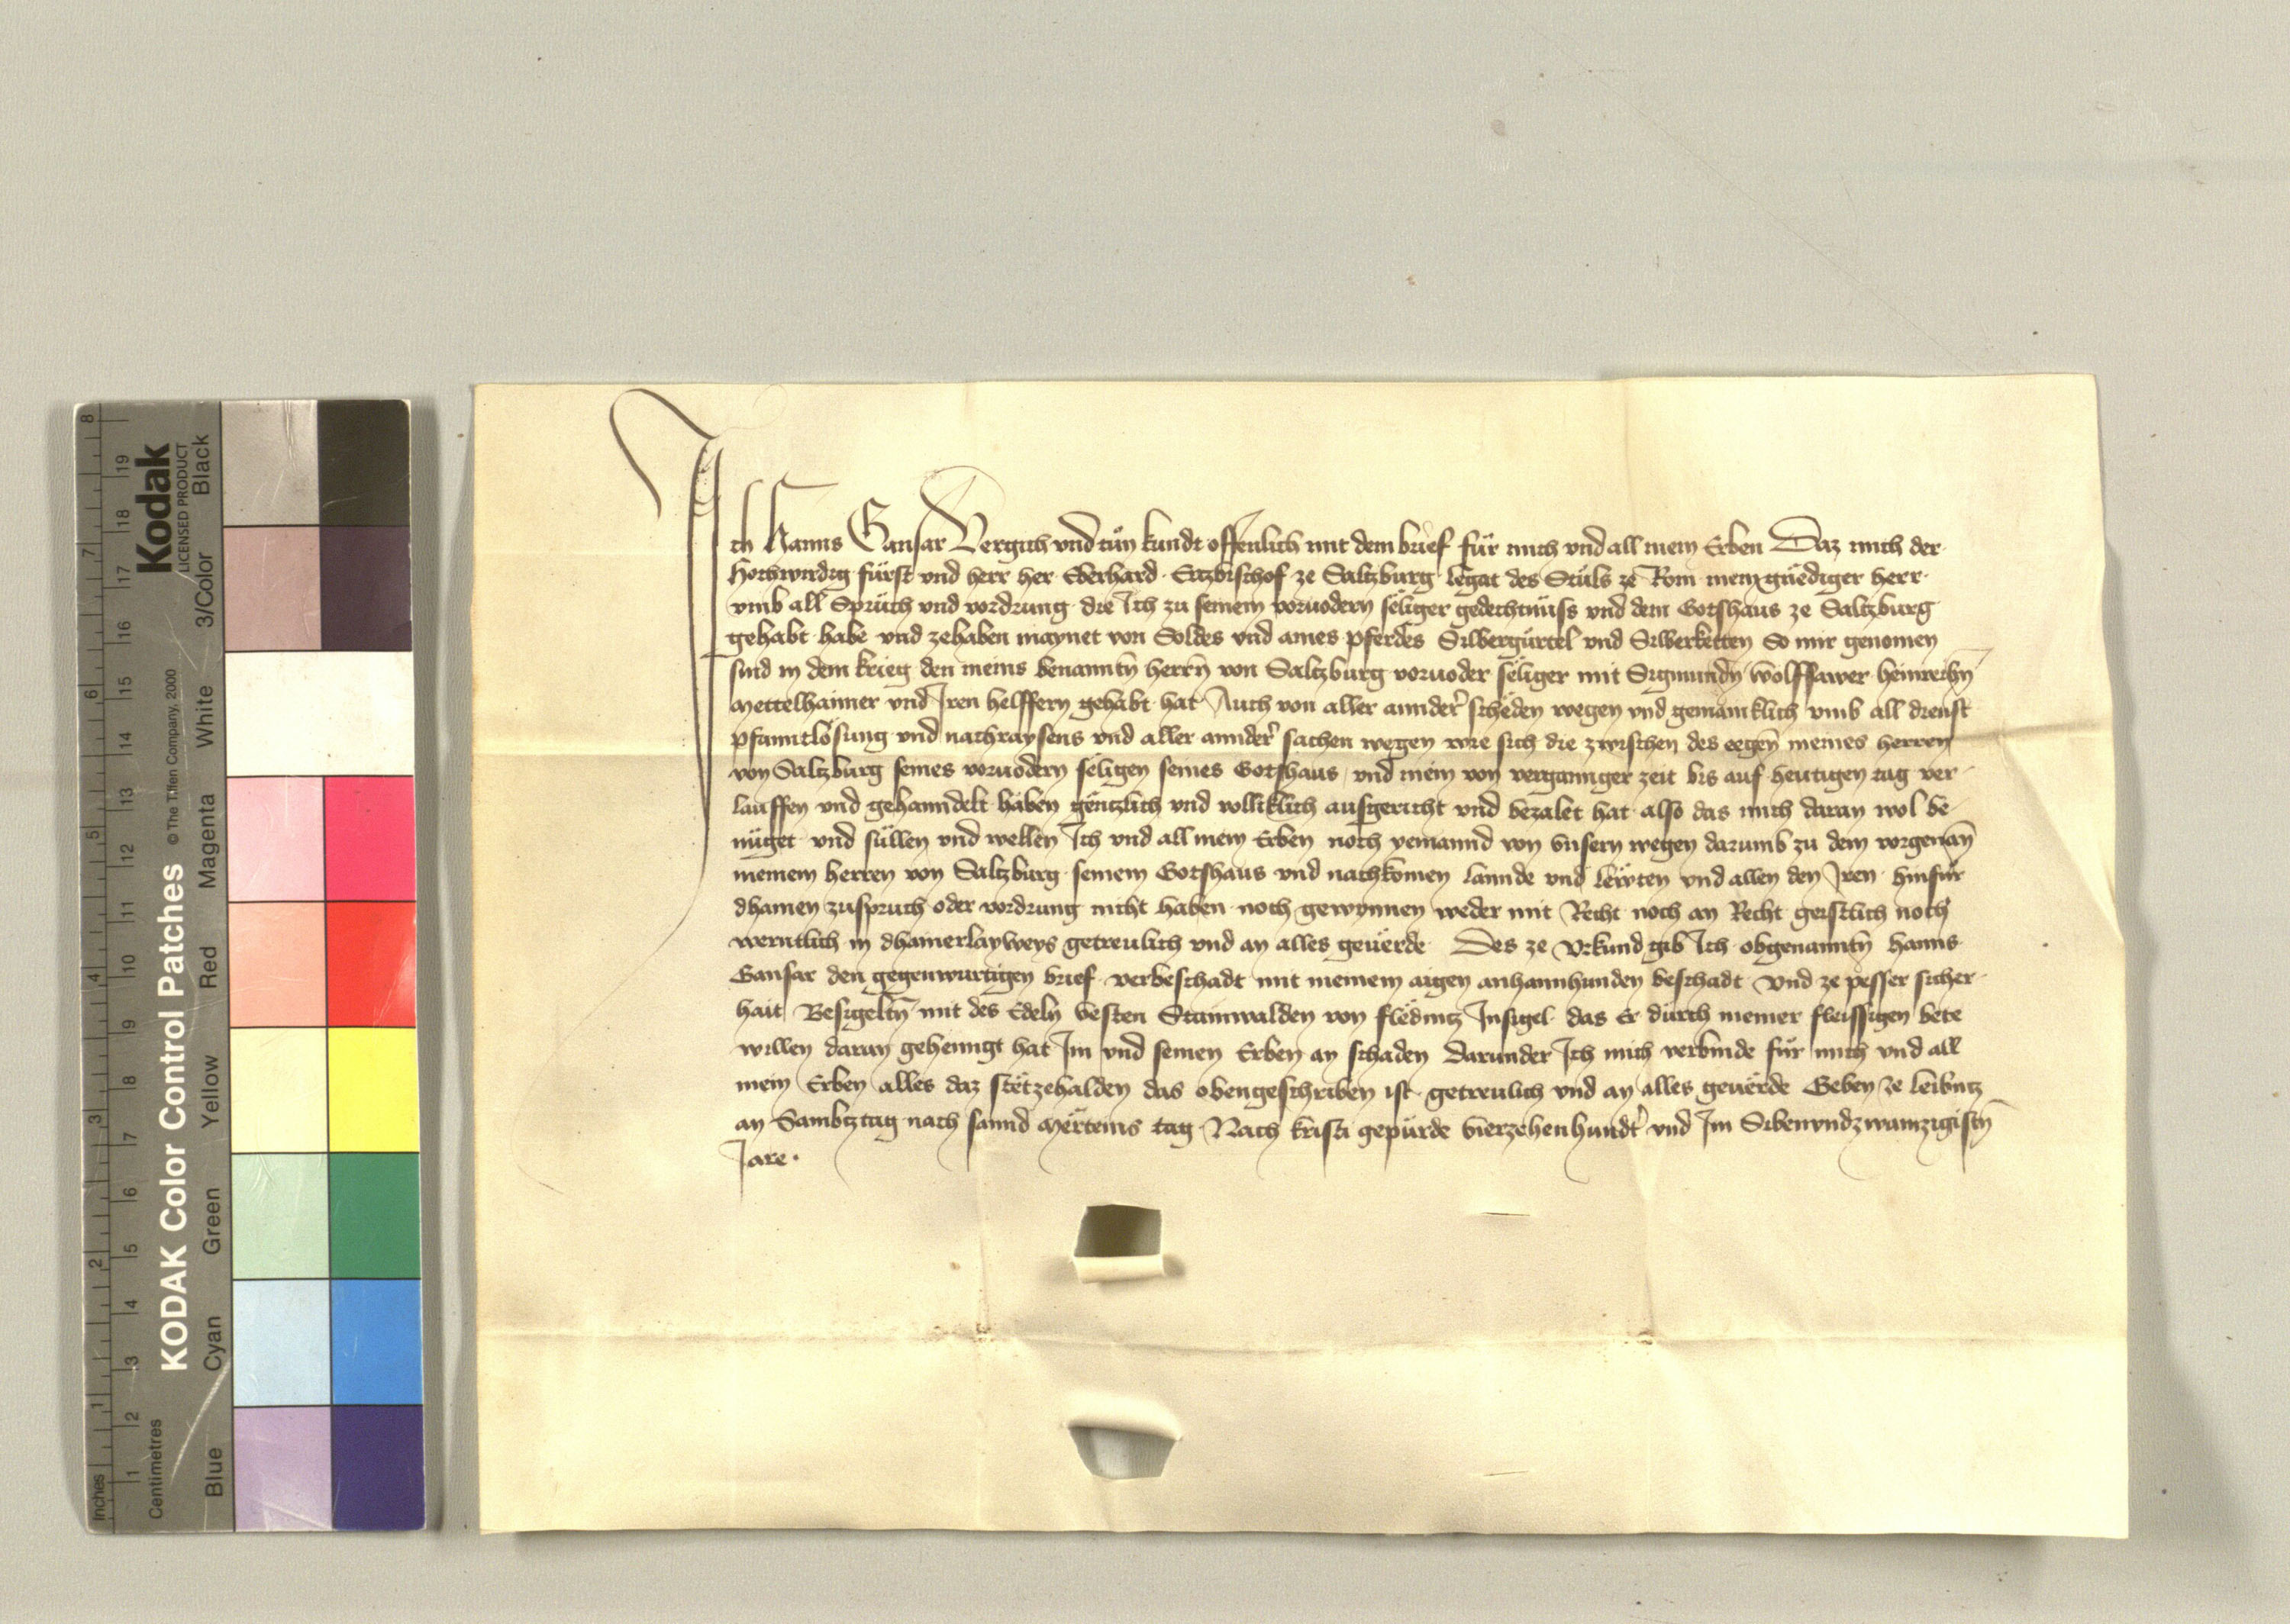 Ich Hanns Gansar Vergich vnd tůn kundt offenlich mit dem brief für mich vnd all mein Erben Daz mich der
Hochwirdig fürst vnd herr her Eberhard Ertzbischof ze Saltzburg legat des Stůls ze Rom mein gnëdiger herr
vmb all Sprüch vnd vordrung die Ich zu seinem voruodern sëliger gedechtnüss vnd dem Gotshaus ze Saltzburg
gehabt habe vnd zehaben maynet von Soldes vnd aines pferdes Silbergürtel vnd Silberketten So mir genomen
sind in dem krieg den meins benanntn̄ herrn̄ von Saltzburg voruoder sëliger mit Sigmundn̄ Wolffawer heinreichn̄
Mettelhaimer vnd Iren helffern gehabt hat Auch von aller annder̓ schëden wegen vnd gemainklich vmb all dienst
pfanntlosung vnd nachraysens vnd aller annder̓ sachen wegen wie sich die zwischen des eegen̄ meines herren
von Saltzburg seines voruodern seligen seines Gotshaus vnd mein von verganngner zeit bis auf heutigen tag ver
lauffen vnd gehanndelt haben gëntzlich vnd volliklich ausgericht vnd bezalet hat also das mich daran wol be
nüget vnd süllen vnd wellen Ich vnd all mein Erben noch yemannd von vnsern wegen darumb zu dem vorgenan̄
meinem herren von Saltzburg seinem Gotshaus vnd nachkomen lannde vnd lewten vnd allen den Iren hinfür
dhainen zuspruch oder vordrung nicht haben noch gewynnen weder mit Recht noch an Recht geistlich noch
werntlich in dhainerlay weys getreulich vnd an alles geuërde Des ze Vrkund gib Ich obgenanntn̄ Hanns
Gansar den gegenwurtigen brief verbeschadt mit meinem aigen anhanngunden beschadt Vnd ze pesser sicher
hait Besigeltn̄ mit des Edeln Vesten Stainwalden von flëdnitz Insigel das Er durch meiner fleissigen bete
willen daran gehenngt hat Im vnd seinen Erben an schaden Darunder Ich mich verbinde für mich vnd all
mein Erben alles daz stët zehalden das obengeschriben ist getreulich vnd an alles geuërde Geben ze leibnitz
an Sambtztag nach sannd Mërteins tag Nach kristi gepürde Vierzehenhundt̓ vnd Im Sibenvndzwainzigistn̄
Jare
8
7
6
5
4
3
2
1
Inches
19
18
17
16
15
14
13
12
11
10
9
8
7
6
5
4
3
2
1
Centimetres
Kodak
LICENSED PRODUCT
© The Tiffen Company, 2000
KODAK Color Control Patches
Black
3/Color
White
Magenta
Red
Yellow
Green
Cyan
Blue